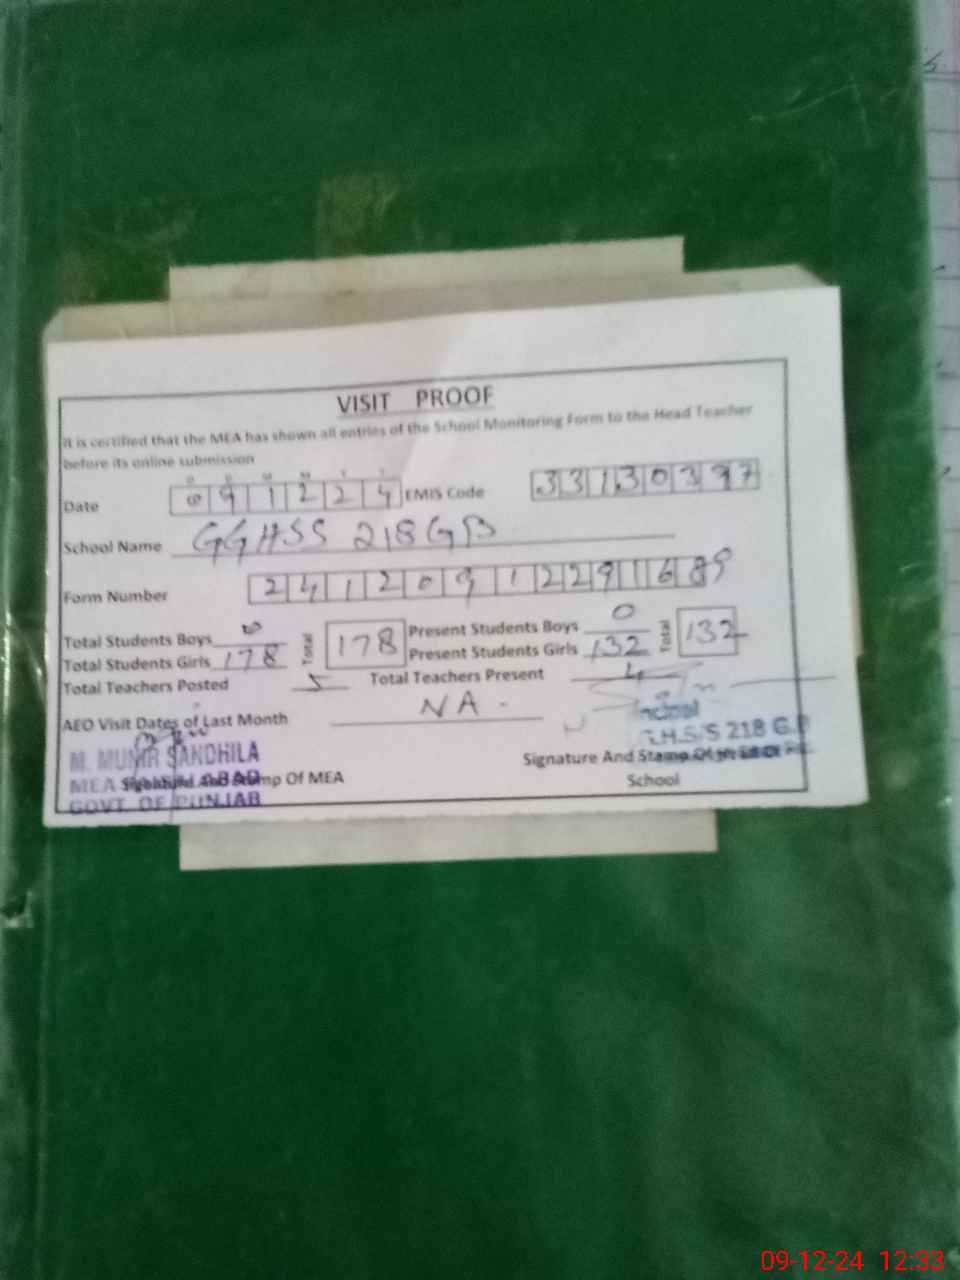 VISIT PROOF
It is certified that the MEA has shown all entries of the School Monitoring Form to the Head Teacher
before its online submission
D D M M Y Y
Date 091224 EMIS Code 33130397
School Name GGHSS 218 GB
Form Number
Total Students Boys 0 Total 178 Present Students Boys 0 Total 132
Total Students Girls 178 Present Students Girls 132
Total Teachers Posted 5 Total Teachers Present 4
AEO Visit Dates of Last Month NA
M. MUNIR SANDHILA
MEA
GOVT. OF PUNJAB
Signature And Stamp Of MEA
218 G.B
Signature And Stamp Of
School
09-12-24 12:33